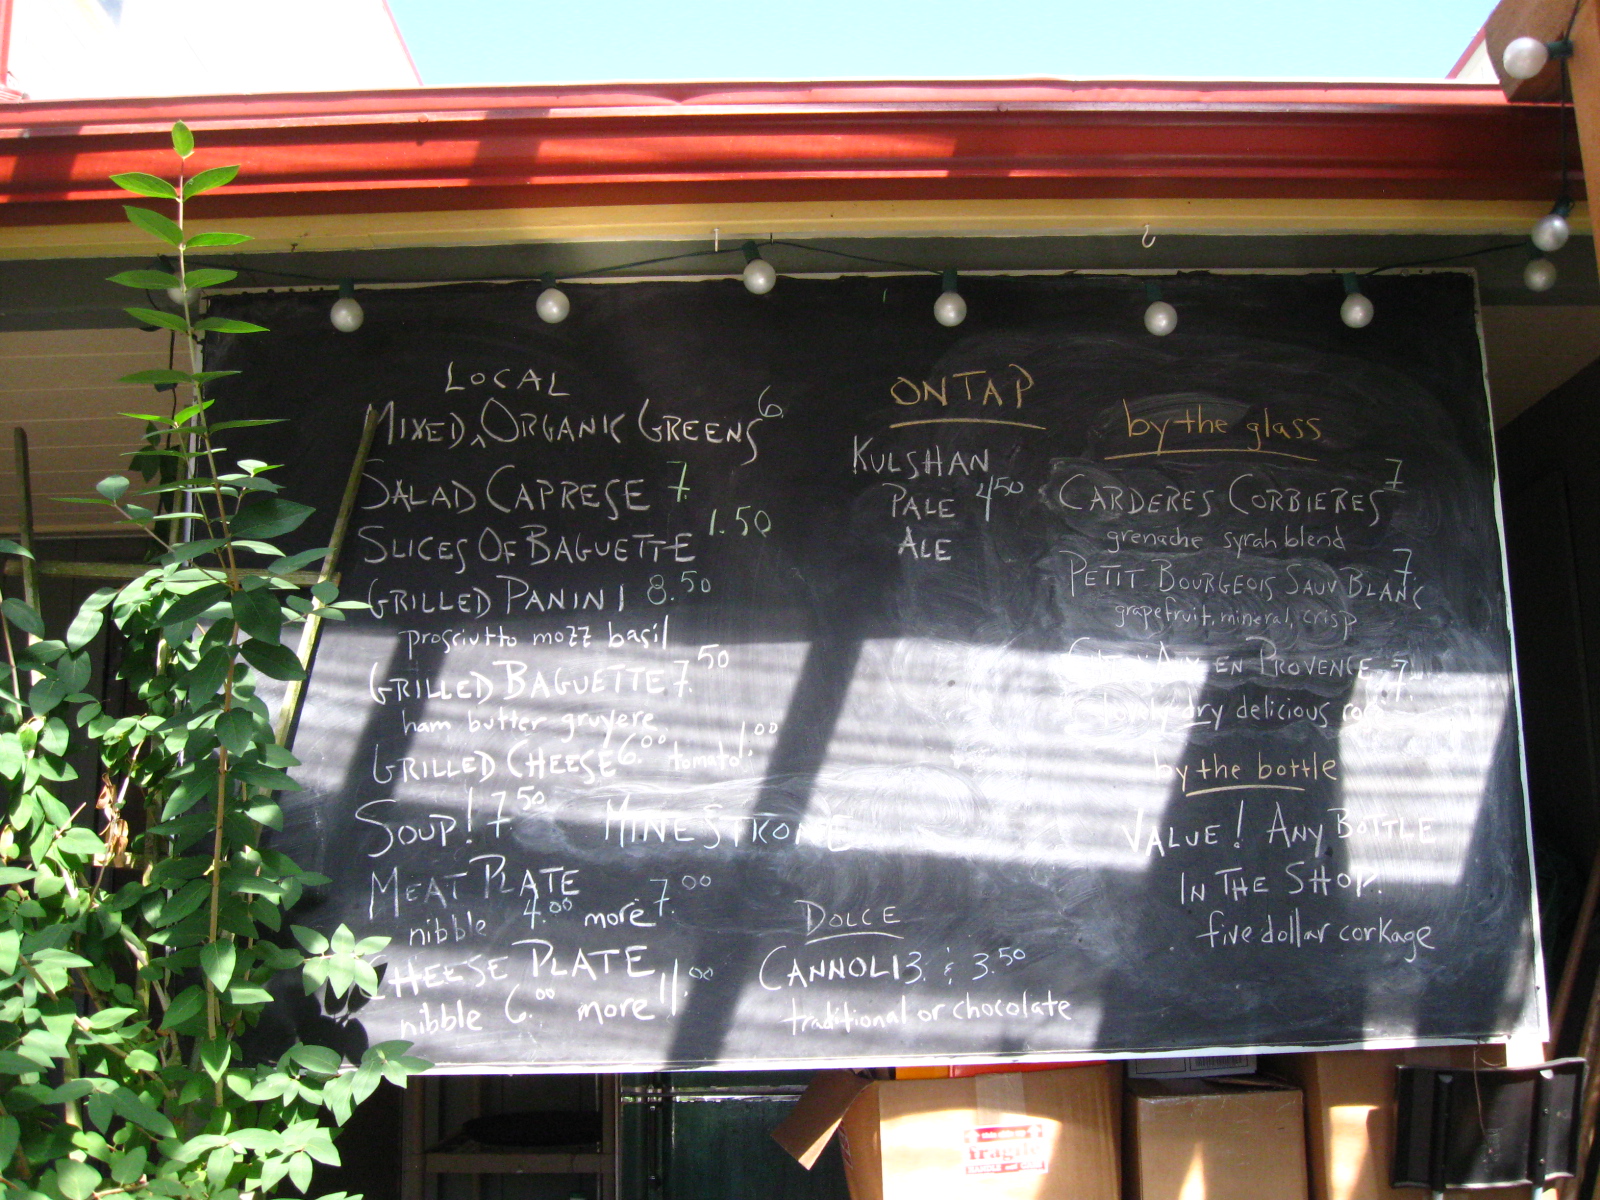 LOCAL
MIXED, ^ ORGANIC GREENS 6
SALAD CAPRESE 7.
SLICES OF BAGUETTE 1.50
GRILLED PANINI 8.50
prosciutto mozz basil
GRILLED BAGUETTE 7.50
ham butter gruyere
GRILLED CHEESE 6.00 tomato 1.00
SOUP! 7.50 MINESTRONE
MEAT PLATE
nibble 4.00 more 7.00
CHEESE PLATE
nibble 6.00 more 11.00
DOLCE
CANNOLI 3. & 3.50
traditional or chocolate
ON TAP
KULSHAN
PALE 4.50
ALE
by the glass
CARDERES CORBIERES 7
grenache syrah blend
PETIT BOURGEOIS SAUV BLANC 7.
grapefruit, mineral, crisp
EN PROVENCE 7.
dry delicious
by the bottle
VALUE! ANY BOTTLE
IN THE SHOP.
five dollar corkage
fragile